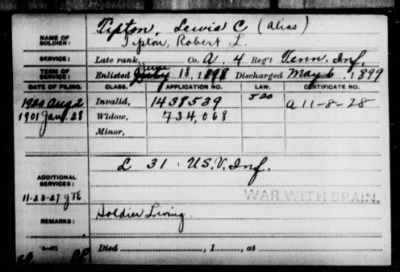 NAME OF SOLDIER:
Tipton, Lewis C (alias)
Tipton, Robert L.
SERVICE:
Late rank, Co. A. 4 Reg't Tenn. Inf.
TERM OF SERVICE:
Enlisted 18, 1898 Discharged May 6, 1899
DATE OF FILING. CLASS. APPLICATION NO. LAW. CERTIFICATE NO.
1920 Aug 2 Invalid, 1438539 J20 A 11-8-28
1901 Jan. 28 Widow, 734,068
Minor,
ADDITIONAL SERVICES:
L 31 U.S.V. Inf.
11-23-27
WAR WITH SPAIN.
REMARKS:
Soldier Living
Died , 1 , at